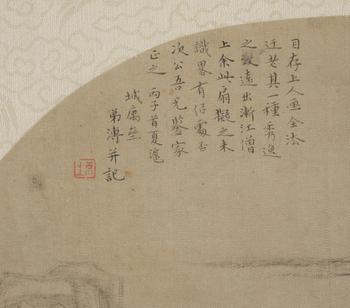 目存上人画全法
近芝其一種秀逸
之致遠出漸江僧
上余此扇擬之未
識畧有仔處否
次公吾兄鑒家
正之 丙子首夏滬
城扇
弟溥并記